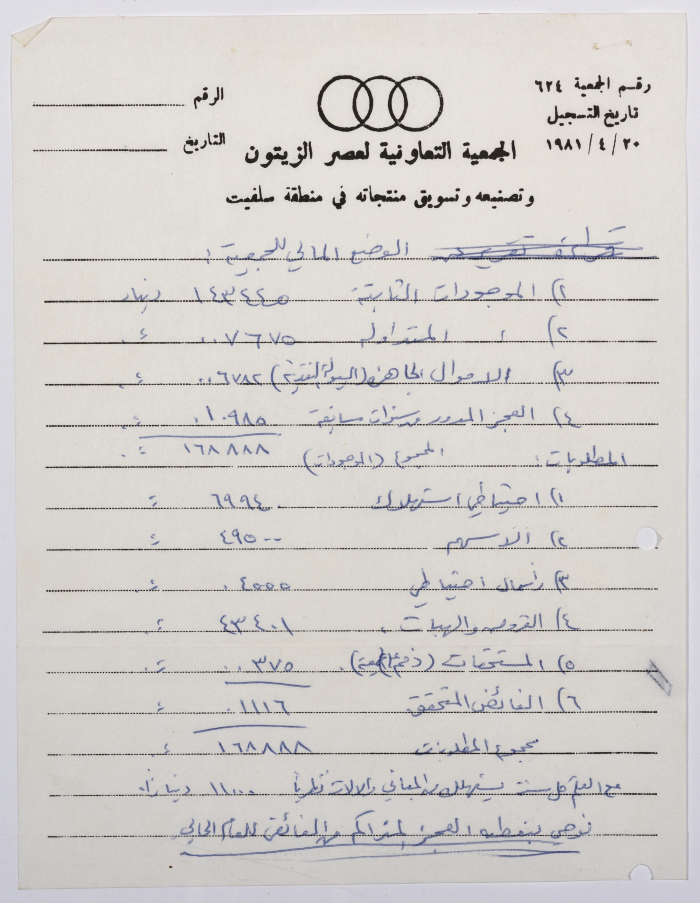 رقم الجمعية ٦٢٤
تاريخ التسجيل
١٩٨١/٤/٢٠
الرقم
التاريخ
الجمعية التعاونية لعصر الزيتون
وتصنيعه وتسويق منتجاته في منطقة سلفيت
الوضع المالي للجمعية:
١) الموجودات الثابتة ١٤٣٤٤٥ دينار
٢) " المتداولة ٠٠٧٦٧٥ =
٣) الاموال الجاهزة (السيولة النقدية) ٠٠٦٧٨٢ =
٤) العجز المدور من سنوات سابقة ٠١٠٩٨٥ =
المجموع (الموجودات) ١٦٨٨٨٨ =
المطلوبات:
١) احتياطي استهلاك ٦٩٩٤٠ =
٢) الاسهم ٤٩٥٠٠ =
٣) رأسمال احتياطي ٠٤٥٥٥ =
٤) القروض والهبات ٤٣٤٠١ =
٥) المستحقات ٠٠٣٧٥ =
٦) الفائض المتحقق ٠١١١٦ =
مجموع المطلوبات ١٦٨٨٨٨ =
مع العلم كل سنة يستهلك من المباني والالات نظرياً ١١٠٠٠ ديناراً
نوصي بتغطية العجز المتراكم من الفائض للعام الحالي